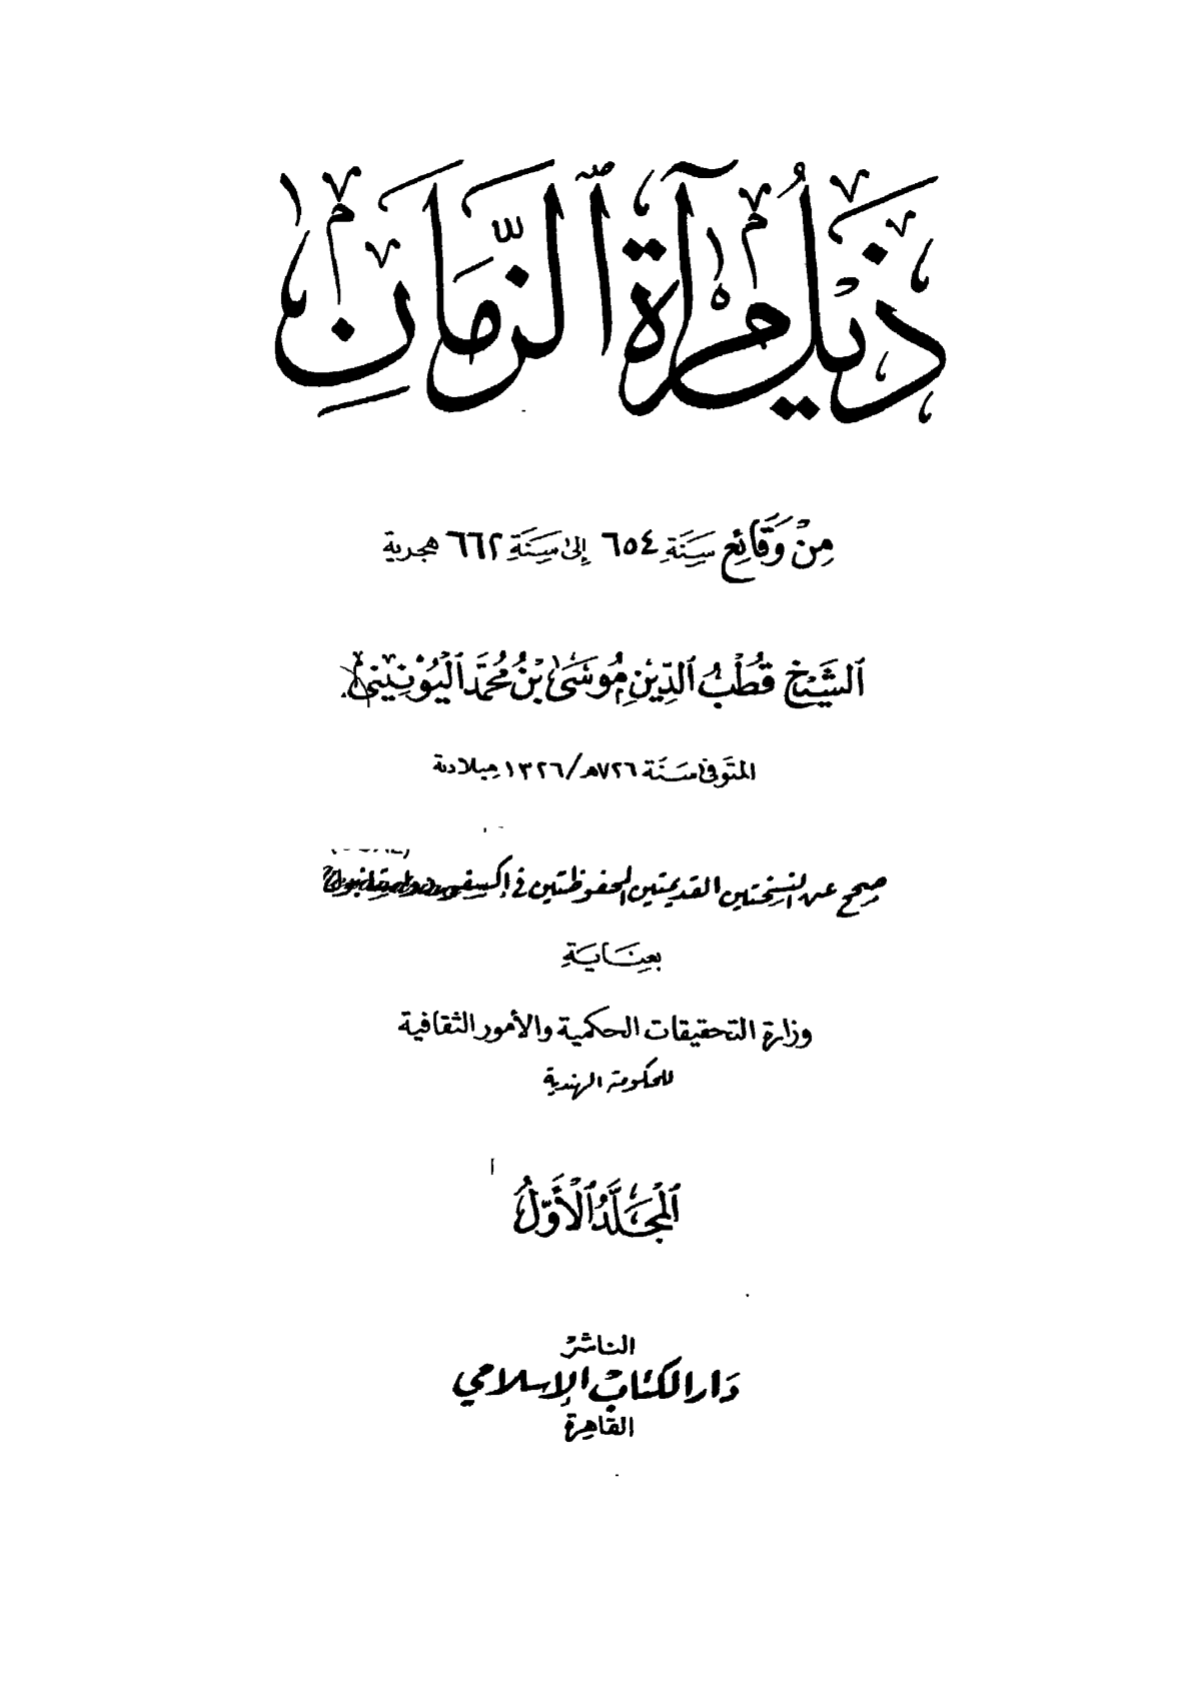 ذَيْلُ مِرْآةِ ٱلزَّمَانِ
مِنْ وَقَائِع سَنَةِ ٦٥٤ إِلىٰ سَنَةِ ٦٦٢ هجرية
ٱلشَّيْخ قُطْبُ ٱلدِّيْنِ مُوسَىٰ بْنُ مُحَمَّد ٱلْيُوْنِيْنِيْ
المتَوفىٰ سَنَة ٧٢٦هـ/١٣٢٦ ميلادية
صحح عن النسختين القديمتين المحفوظتين في إكسفورد واستانبول
بعِنَايَةِ
وزارة التحقيقات الحكمية والأمور الثقافية
للحكومة الهندية
ٱلْمُجَلَّدُ ٱلْأَوَّلُ
الناشر
دَار الكتاب الإسلامي
القاهِرة